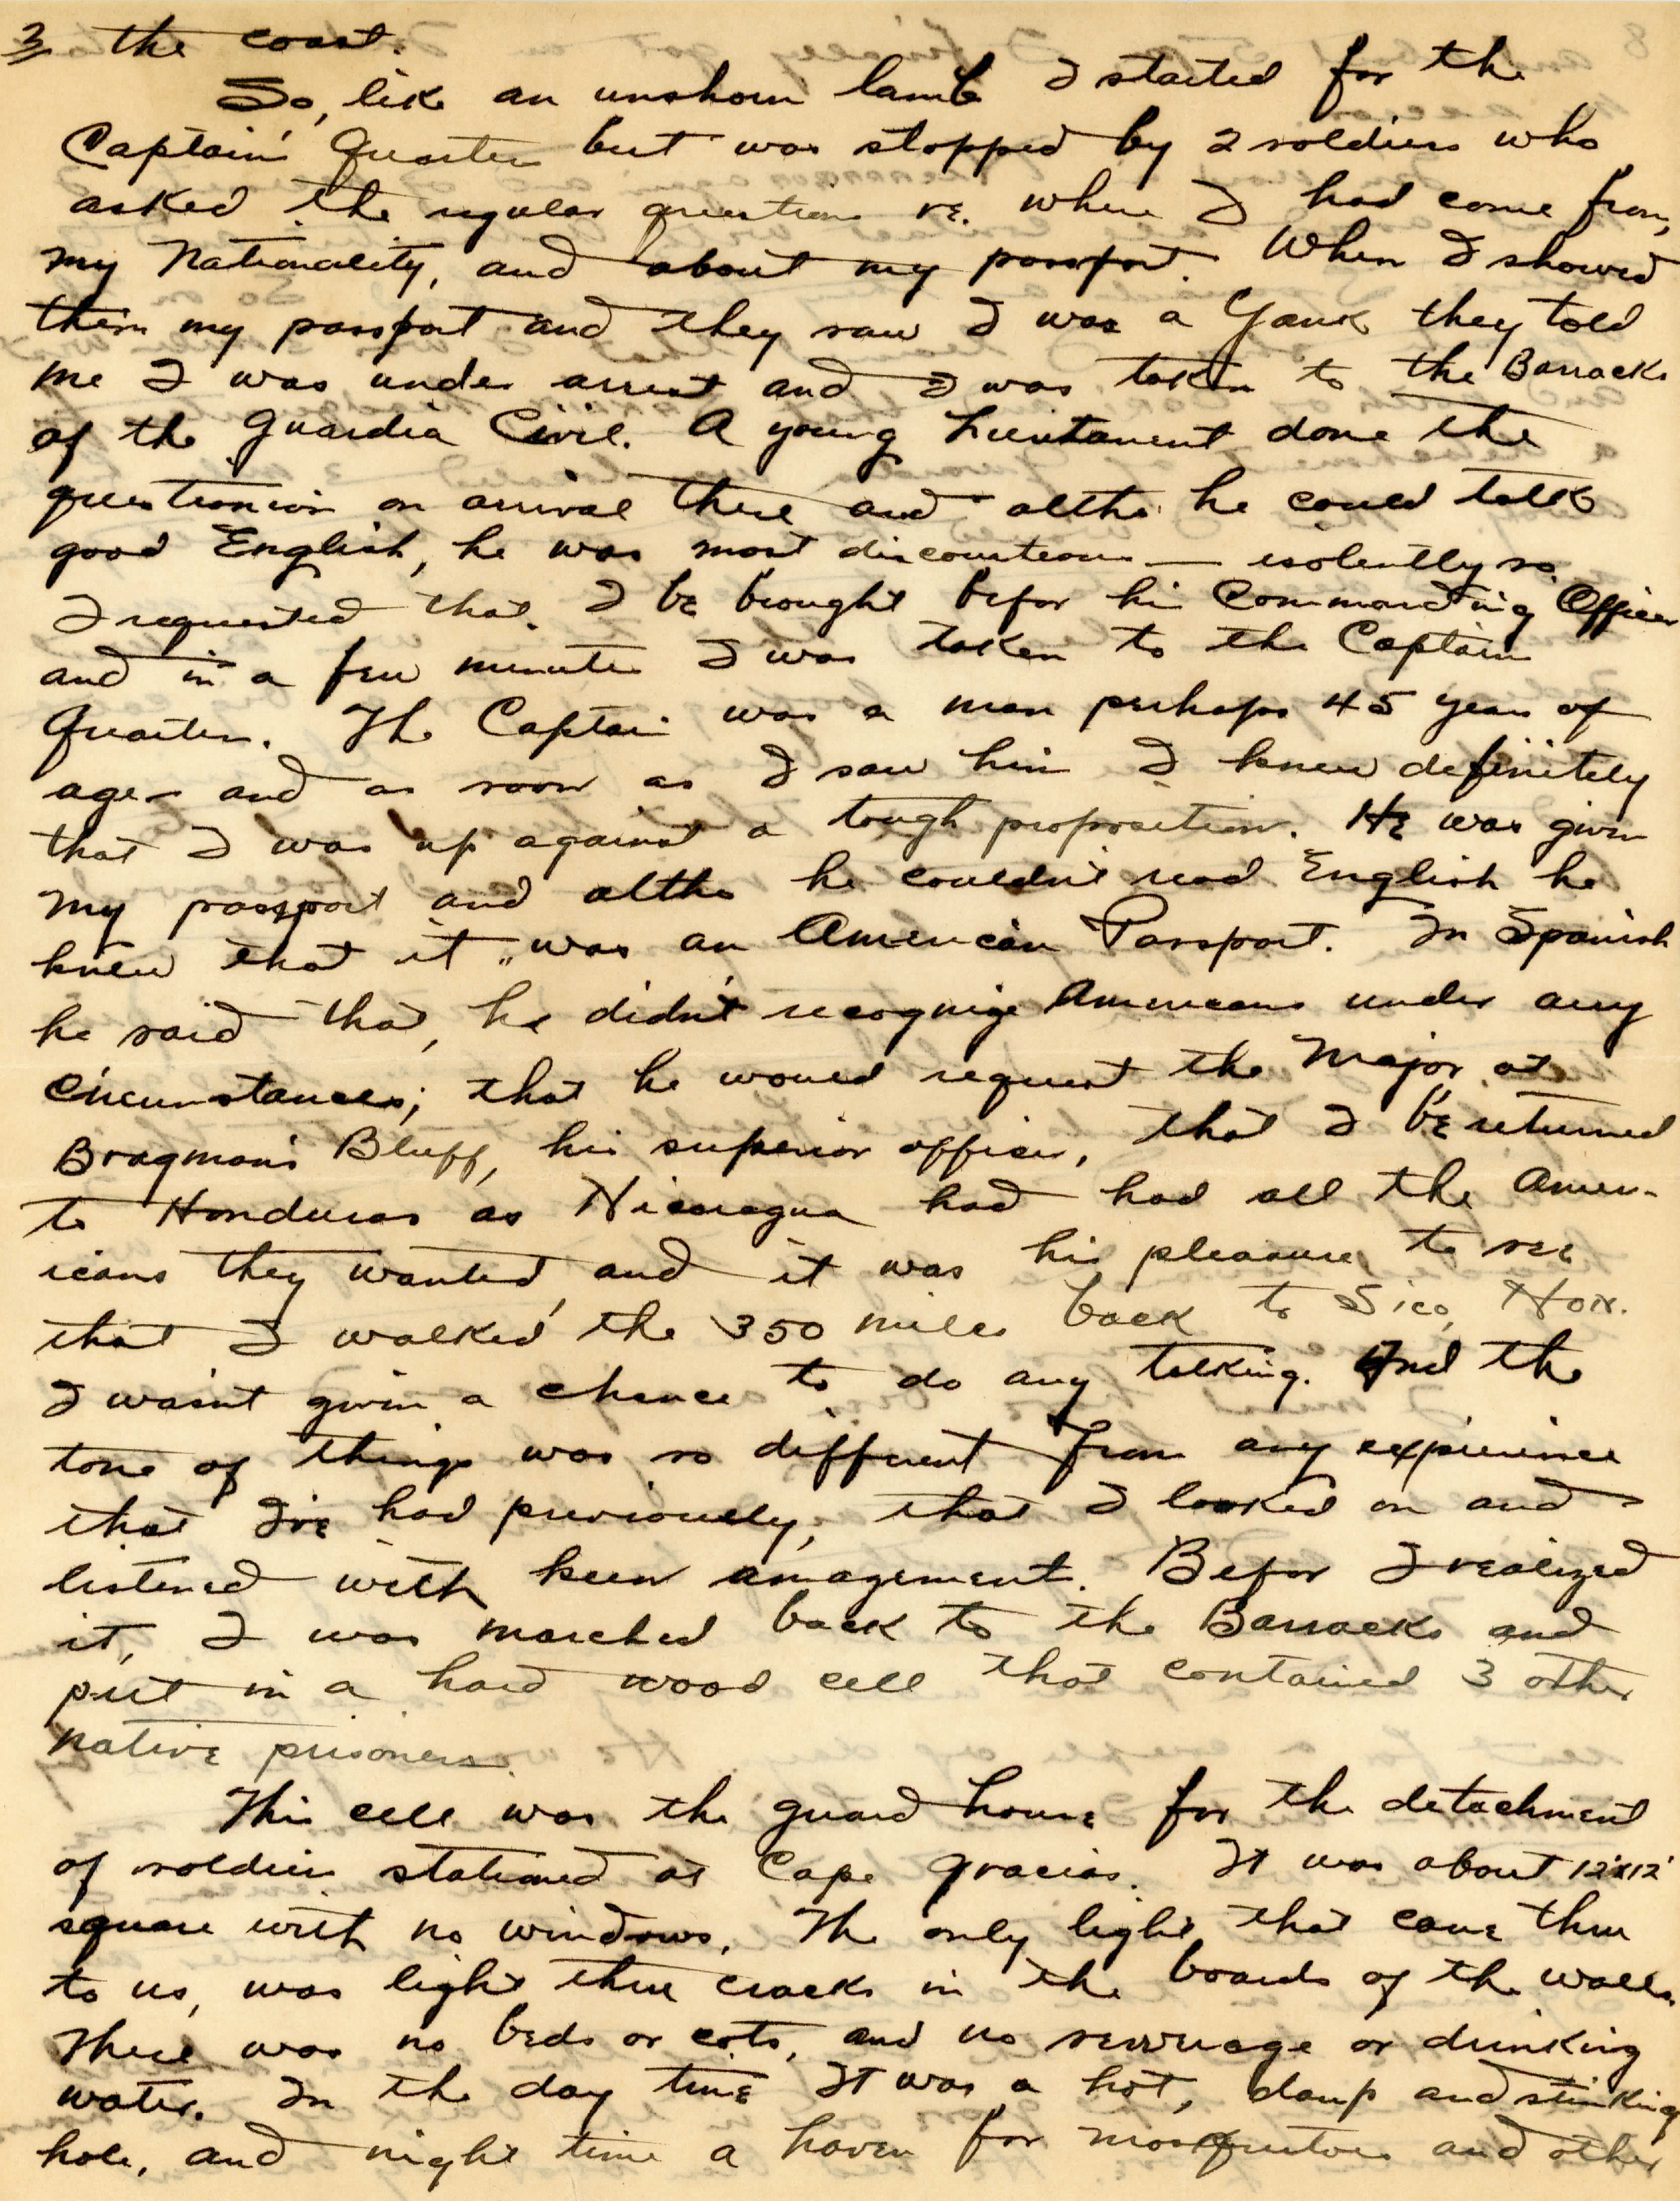 3 the coast.
So, like an unshorn lamb I started for the
Captain's Quarters but was stopped by 2 soldiers who
asked the regular questions re. where I had come from,
my Nationality, and about my passport. When I showed
them my passport and they saw I was a Yank they told
me I was under arrest and I was taken to the Barracks
of the Guardia Civil. A young Lieutanent done the
questionion on arrival there and altho he could talk
good English, he was most discourteous — isolently so.
I requested that I be brought befor his Commanding Officer
and in a few minutes I was taken to the Captains
Quarters. The Captain was a man perhaps 45 years of
age – and as soon as I saw him I knew definitely
that I was up against a tough proposition. He was given
my passport and altho he couldn't read English he
knew that it was an American Passport. In Spanish
he said that, he didn't recognize Americans under any
circumstances; that he would request the Major at
Bragman's Bluff, his superior officer, that I be returned
to Honduras as Nicaragua had had all the Amer-
icans they wanted, and it was his pleasure to see
that I walked the 350 miles back to Sico, Hon.
I wasn't given a chance to do any talking. And the
tone of things was so different from any expierince
that I've had previously, that I looked on and
listened with keen amazement. Befor I realized
it, I was marched back to the Barracks and
put in a hard wood cell that contained 3 other
native prisoners.
This cell was the guard house for the detachment
of soldiers stationed at Cape Gracias. It was about 12'x12'
square with no windows. The only light that came thru
to us, was light thru cracks in the boards of the walls.
There was no beds or cots, and no sewerage or drinking
water. In the day time It was a hot, damp and stinking
hole, and night time a haven for mosquitoes and other